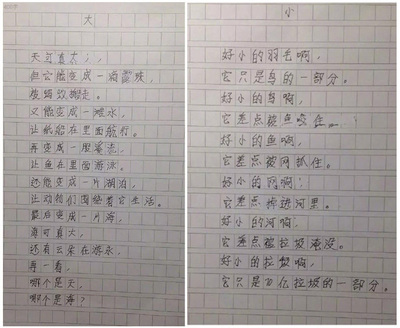 大
天可真大，
但它能变成一滴露珠，
被蚂蚁搬走。
又能变成一滩水，
让纸船在里面航行。
再变成一股溪流，
让鱼在里面游泳。
还能变成一片湖泊，
让动物们围绕着它生活。
最后变成一片海，
海可真大，
还有云朵在游泳，
再一看，
哪个是天，
哪个是海？
小
好小的羽毛啊，
它只是鸟的一部分。
好小的鸟啊，
它差点被鱼咬住。
好小的鱼啊，
它差点被网抓住。
好小的网啊，
它差点掉进河里。
好小的河啊，
它差点被垃圾淹没。
好小的垃圾啊，
它只是几亿垃圾的一部分。